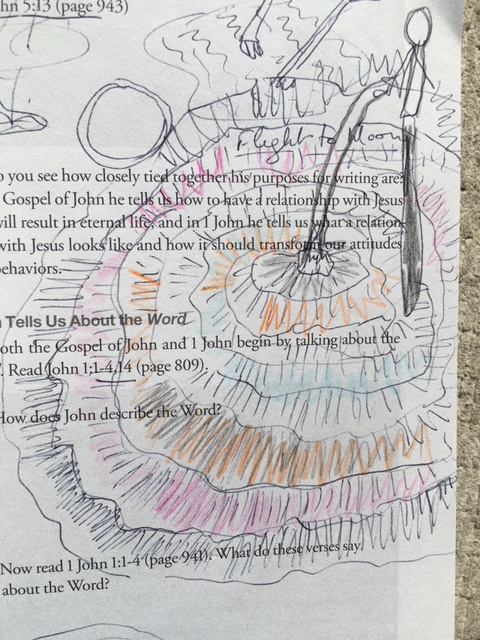 hn 5:13 (page 943)
Flight to Moon
o you see how closely tied together his purposes for writing are?
Gospel of John he tells us how to have a relationship with Jesus
will result in eternal life, and in 1 John he tells us what a relation
with Jesus looks like and how it should transform our attitudes
behaviors.
n Tells Us About the Word
oth the Gospel of John and 1 John begin by talking about the
. Read John 1:1-4,14 (page 809).
How does John describe the Word?
Now read 1 John 1:1-4 (page 941). What do these verses say
about the Word?